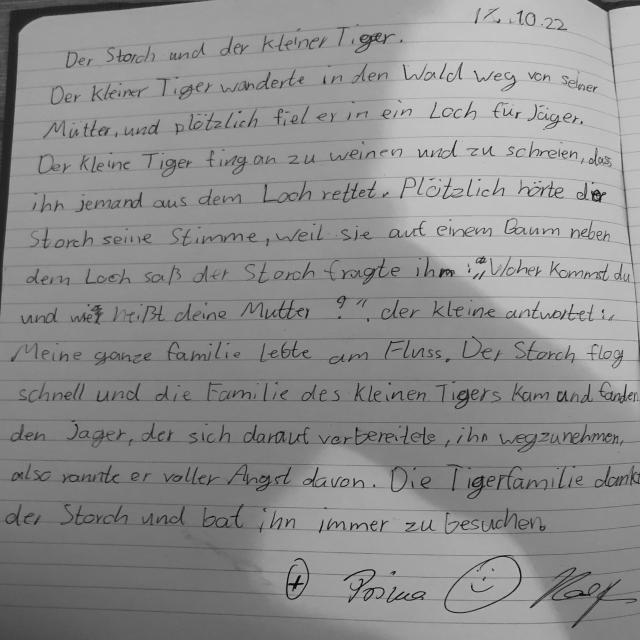 17.10.22
Der Storch und der kleiner Tiger.
Der kleiner Tiger wanderte in den Wald weg von seiner
Mutter, und plötzlich fiel er in ein Loch für Jäger.
Der kleine Tiger fing an zu weinen und zu schreien, dass
ihn jemand aus dem Loch rettet. Plötzlich hörte der
Storch seine Stimme, weil sie auf einem Baum neben
dem Loch saß der Storch fragte ihm :„Woher kommst du
und wie heißt deine Mutter ?“. der kleine antwortet:„
Meine ganze familie lebte am Fluss. Der Storch flog
schnell und die Familie des kleinen Tigers kam und fanden
den Jager, der sich darauf vorbereitete, ihn wegzunehmen,
also rannte er voller Angst davon. Die Tigerfamilie dankt
der Storch und bat ihn immer zu besuchen.
Prima